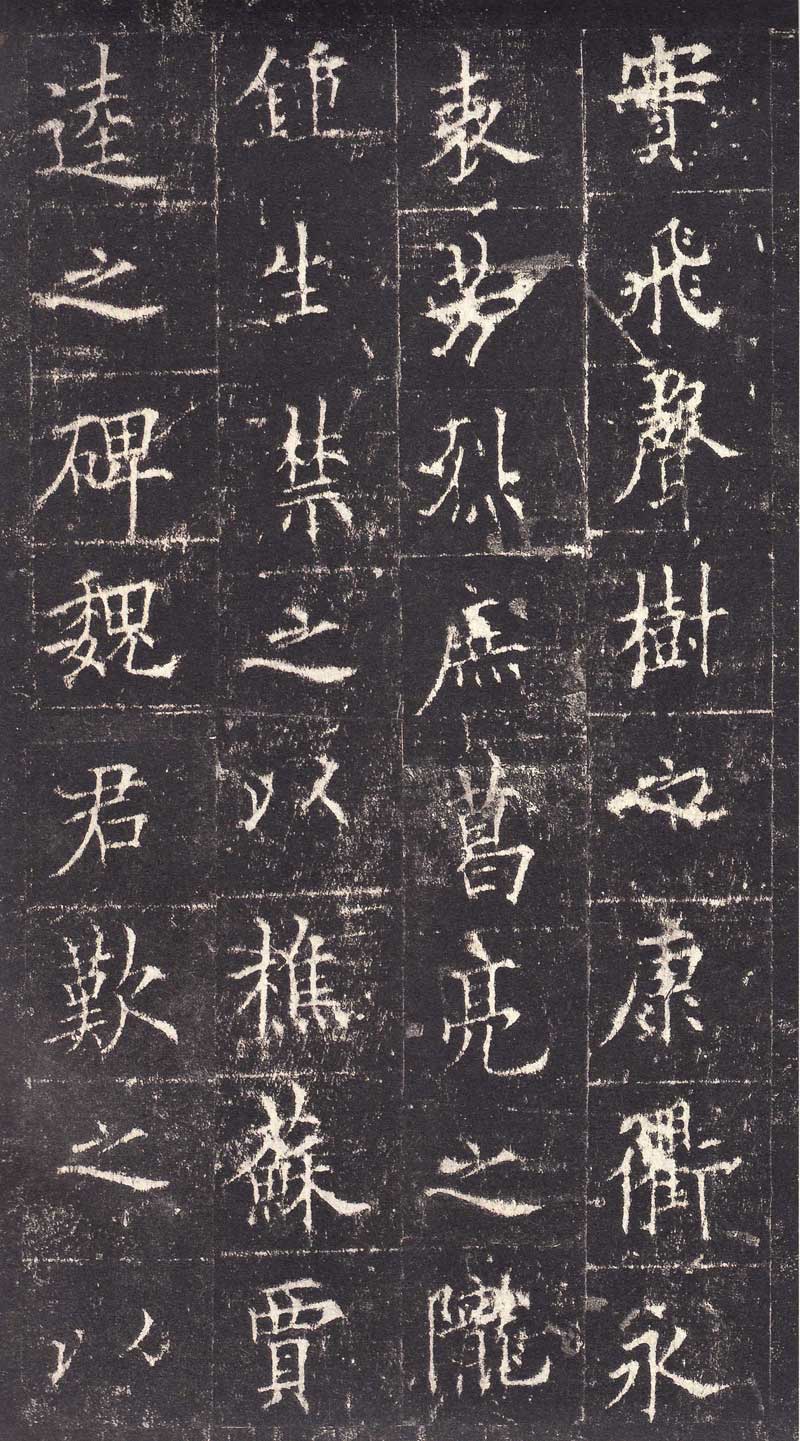 實飛聲樹之康衢永
表芳烈庶葛亮之隴
鍾生禁之以樵蘇賈
逵之碑魏君歎之以